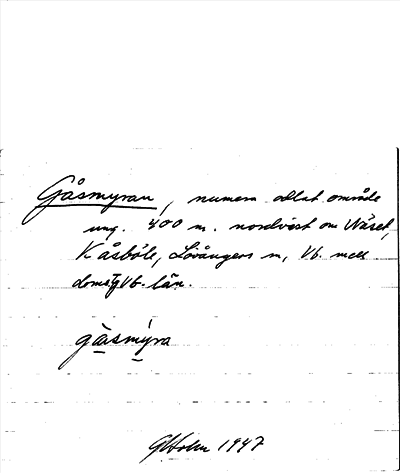 Gåsmyran, numera odlat område
ung. 400 m. nordväst om Näset,
Kåsböle, Lövångers sn, Vb. mell.
doms. Vb. län.
gåsmyra
GHolm 1947